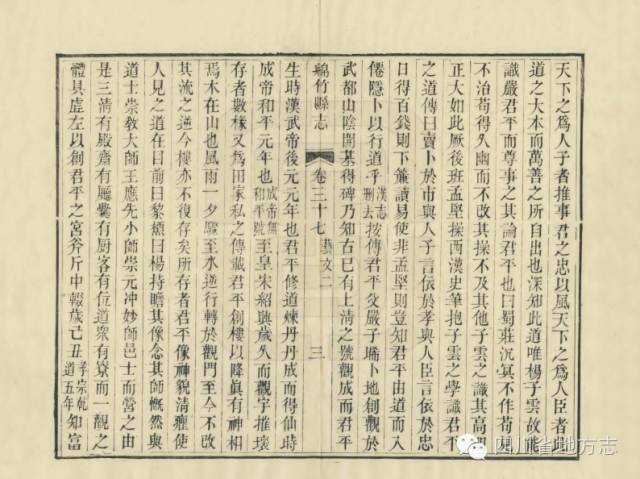 天下之爲人子者推事君之忠以風天下之爲人臣者
道之大本而萬善之所自出也深知此道唯楊子雲故能
識嚴君平而尊事之其論君平也曰蜀莊沉冥不作苟見
不治苟得久幽而不改其操不及其他子雲之識其高明
正大如此厥後班孟堅操西漢史筆抱子雲之學識君平
之道傳曰賣卜於市與人子言依於孝與人臣言依於忠
日得百錢則下簾讀易使非孟堅則豈知君平由道而入
僊隱卜以行道乎漢志刪去按傳君平父嚴子晞卜地創觀於
武都山陰開基得碑乃知古巳有上清之號觀成而君平
緜竹縣志 卷三十七 藝文二 三
生時漢武帝後元元年也君平修道煉丹丹成而得仙時
成帝和平元年也成帝無和平號至皇宋紹興歲久而觀宇摧壞
存者數椽又爲田家私之傳載君平創樓以降眞有神相
焉木在山也風雨一夕驟至水逆行轉於觀門至今不改
其流之逆今樓亦不復存矣所存者君平像神貌清癯使
人見之道在目前曰黎頫曰楊持瞻其像念其師慨然與
道士崇敎大師王應先小師崇元冲妙師邑士而營之由
是三清有殿齋有廳纍有厨客有位道衆有寮而一觀之
體具虛左以創君平之宮斧斤中輟歲己丑孝宗乾道五年知富
四川省地方志